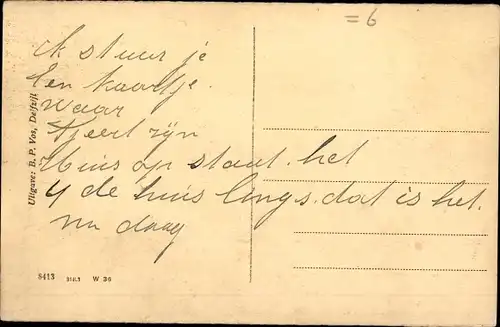 = 6
ik stuur je
Een kaartje.
waar
Geert zijn
Huis op staat. het
4 de huis lings. dat is het.
nu daag
Uitgave: B. P. Vos, Delfzijl
8413 318.1 W 36